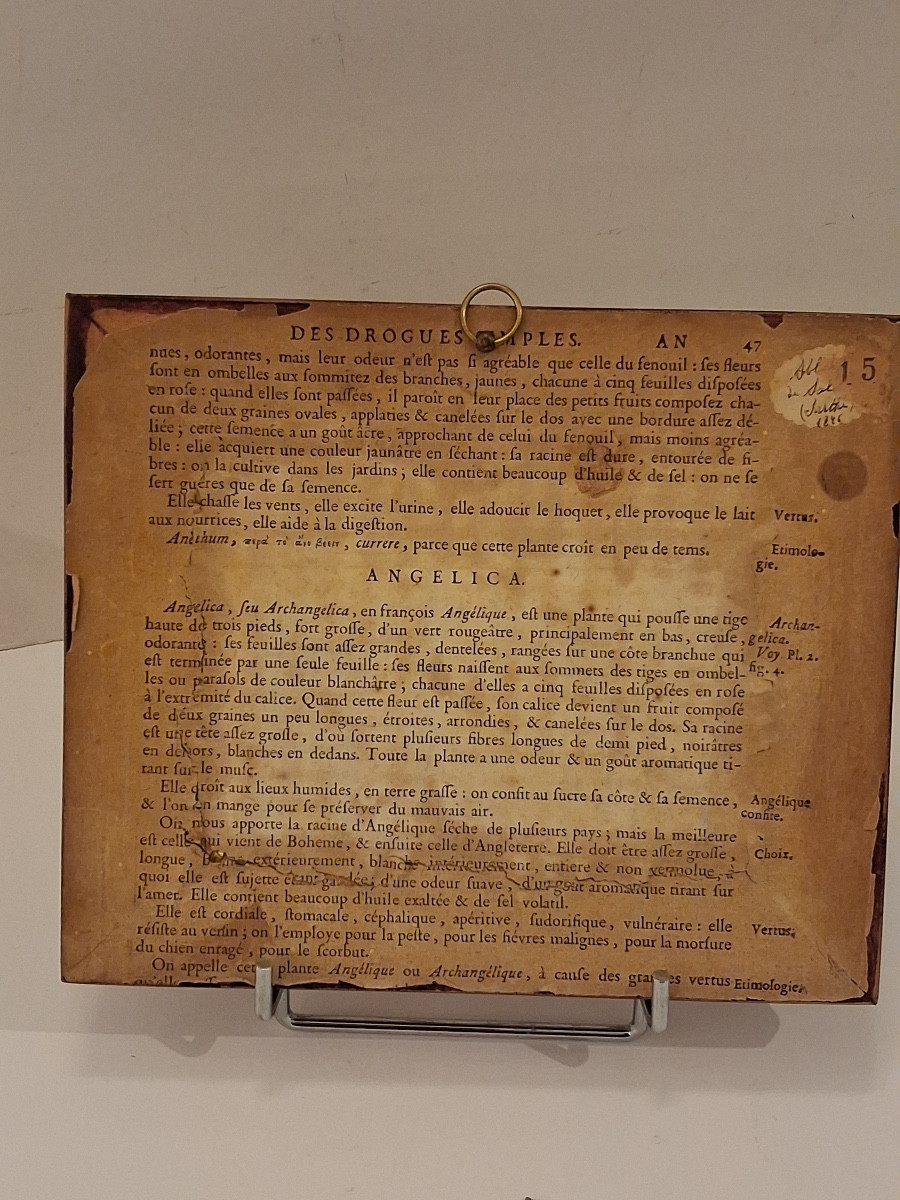 DES DROGUES MPLES. AN 47
nues, odorantes, mais leur odeur n'eſt pas ſi agréable que celle du fenouil : ſes fleurs
ſont en ombelles aux ſommitez des branches, jaunes, chacune à cinq feuilles diſpoſées
en roſe : quand elles ſont paſſées, il paroît en leur place des petits fruits compoſez cha-
cun de deux graines ovales, applaties & canelées ſur le dos avec une bordure aſſez dé-
liée ; cette ſemence a un goût âcre, approchant de celui du fenouil, mais moins agréa-
ble : elle acquiert une couleur jaunâtre en ſéchant : ſa racine eſt dure, entourée de fi-
bres : on la cultive dans les jardins ; elle contient beaucoup d'huile & de ſel : on ne ſe
ſert guéres que de ſa ſemence.
Elle chaſſe les vents, elle excite l'urine, elle adoucit le hoquet, elle provoque le lait
Vertus.
aux nourrices, elle aide à la digeſtion.
Anethum, , currere, parce que cette plante croît en peu de tems.
Etimolo-
gie.
ANGELICA.
Angelica, ſeu Archangelica, en françois Angélique, eſt une plante qui pouſſe une tige
Archan-
haute de trois pieds, fort groſſe, d'un vert rougeâtre, principalement en bas, creuſe,
gelica.
odorante : ſes feuilles ſont aſſez grandes, dentelées, rangées ſur une côte branchue qui
Voy Pl. 2.
eſt terminée par une ſeule feuille : ſes fleurs naiſſent aux ſommets des tiges en ombel-
fig. 4.
les ou paraſols de couleur blanchâtre ; chacune d'elles a cinq feuilles diſpoſées en roſe
à l'extrémité du calice. Quand cette fleur eſt paſſée, ſon calice devient un fruit compoſé
de deux graines un peu longues, étroites, arrondies, & canelées ſur le dos. Sa racine
eſt une tête aſſez groſſe, d'où ſortent pluſieurs fibres longues de demi pied, noirâtres
en dehors, blanches en dedans. Toute la plante a une odeur & un goût aromatique ti-
rant ſur le muſc.
Elle croît aux lieux humides, en terre graſſe : on confit au ſucre ſa côte & ſa ſemence,
Angélique
& l'on en mange pour ſe préſerver du mauvais air.
confite.
On nous apporte la racine d'Angélique ſéche de pluſieurs pays ; mais la meilleure
eſt celle qui vient de Boheme, & enſuite celle d'Angleterre. Elle doit être aſſez groſſe,
Choix.
longue, brune extérieurement, blanche intérieurement, entiere & non vermolue, à
quoi elle eſt ſujette étant gardée; d'une odeur ſuave, d'un goût aromatique tirant ſur
l'amer. Elle contient beaucoup d'huile exaltée & de ſel volatil.
Elle eſt cordiale, ſtomacale, céphalique, apéritive, ſudorifique, vulnéraire : elle
Vertus.
réſiſte au venin ; on l'employe pour la peſte, pour les fiévres malignes, pour la morſure
du chien enragé, pour le ſcorbut.
On appelle cette plante Angélique ou Archangélique, à cauſe des grandes vertus
Etimologie.
15